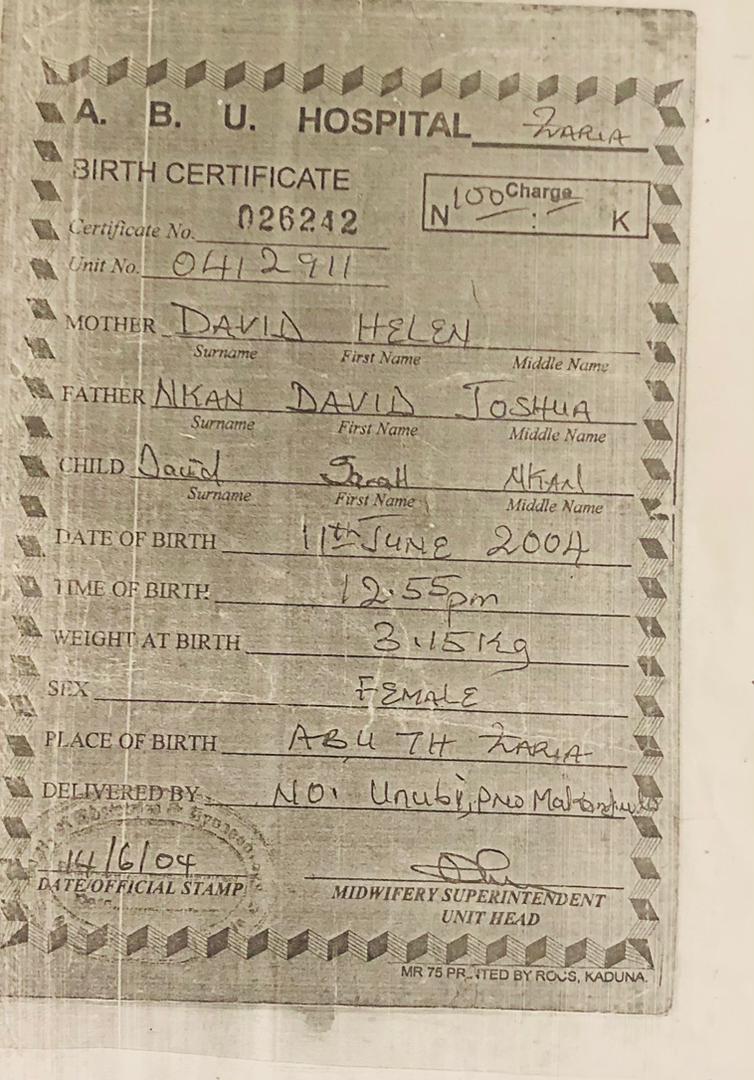 A. B. U. HOSPITAL ZARIA
BIRTH CERTIFICATE
N 100 Charge : K
Certificate No. 026242
Unit No. 0412911
MOTHER DAVID HELEN
Surname First Name Middle Name
FATHER NKAN DAVID JOSHUA
Surname First Name Middle Name
CHILD David Sarah NKAN
Surname First Name Middle Name
DATE OF BIRTH 11th JUNE 2004
TIME OF BIRTH 12.55pm
WEIGHT AT BIRTH 3.15Kg
SEX FEMALE
PLACE OF BIRTH ABU TH ZARIA
DELIVERED BY NO. Unubi,
14/6/04
DATE/OFFICIAL STAMP
MIDWIFERY SUPERINTENDENT
UNIT HEAD
MR 75 PRINTED BY KADUNA.